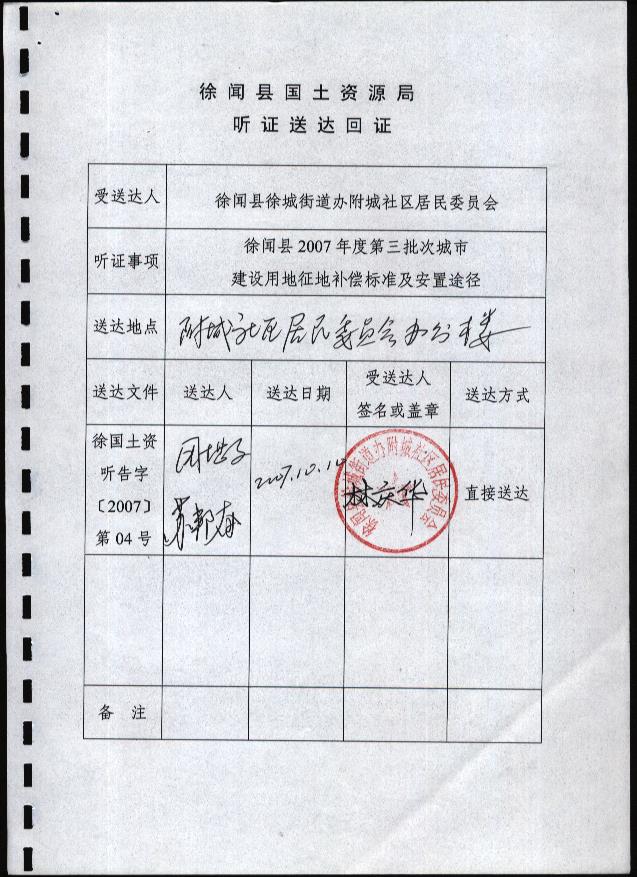 徐闻县国土资源局
听证送达回证
受送达人
徐闻县徐城街道办附城社区居民委员会
听证事项
徐闻县2007年度第三批次城市
建设用地征地补偿标准及安置途径
送达地点
附城社区居民委员会办公楼
送达文件
送达人
送达日期
受送达人
签名或盖章
送达方式
徐国土资
听告字
〔2007〕
第04号
2007.10.10
徐闻县徐城街道办附城社区居民委员会
林庆华
直接送达
备 注